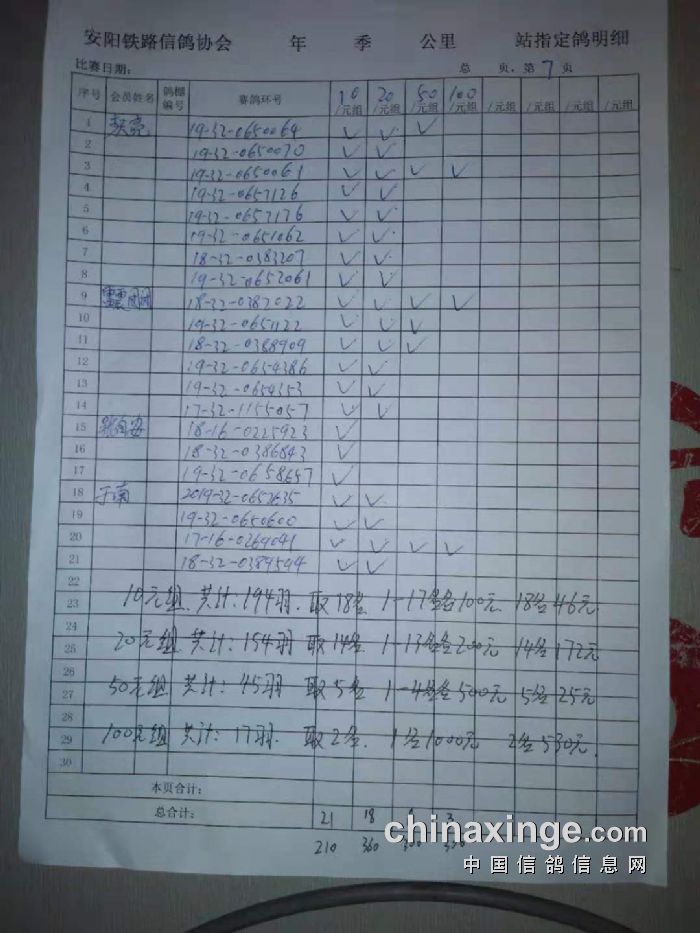 安阳铁路信鸽协会 年 季 公里 站指定鸽明细
比赛日期： 总 页，第 7 页
序号 会员姓名 鸽棚编号 赛鸽环号 10/元组 20/元组 50/元组 100/元组 /元组 /元组 /元组 /元组
1 19-32-0650064 ✓ ✓ ✓
2 19-32-0650070 ✓ ✓
3 19-32-0650061 ✓ ✓ ✓ ✓
4 19-32-0657126 ✓ ✓
5 19-32-0657176 ✓ ✓
6 19-32-0651062 ✓ ✓
7 18-32-0383207 ✓ ✓
8 19-32-0652061 ✓ ✓
9 18-32-0387022 ✓ ✓ ✓ ✓
10 19-32-0651122 ✓ ✓ ✓
11 18-32-0388909 ✓ ✓ ✓
12 19-32-0654386 ✓ ✓
13 19-32-0654353 ✓ ✓
14 17-32-1155057 ✓ ✓
15 18-16-0225923 ✓
16 18-32-0386843 ✓
17 19-32-0658657 ✓
18 于南 2019-32-0652635 ✓ ✓
19 19-32-0650600 ✓ ✓
20 17-16-0269041 ✓ ✓ ✓ ✓
21 18-32-0389594 ✓ ✓
22
23 10元组 共计：194羽 取18名 1-17名各100元 18名46元
24
25 20元组 共计：154羽 取14名 1-13名各200元 14名172元
26
27 50元组 共计：45羽 取5名 1-4名各500元 5名25元
28
29 100元组 共计：17羽 取2名 1名1000元 2名530元
30
本页合计：
总合计： 21 18 3
210 360 300
chinaxinge.com
中国信鸽信息网